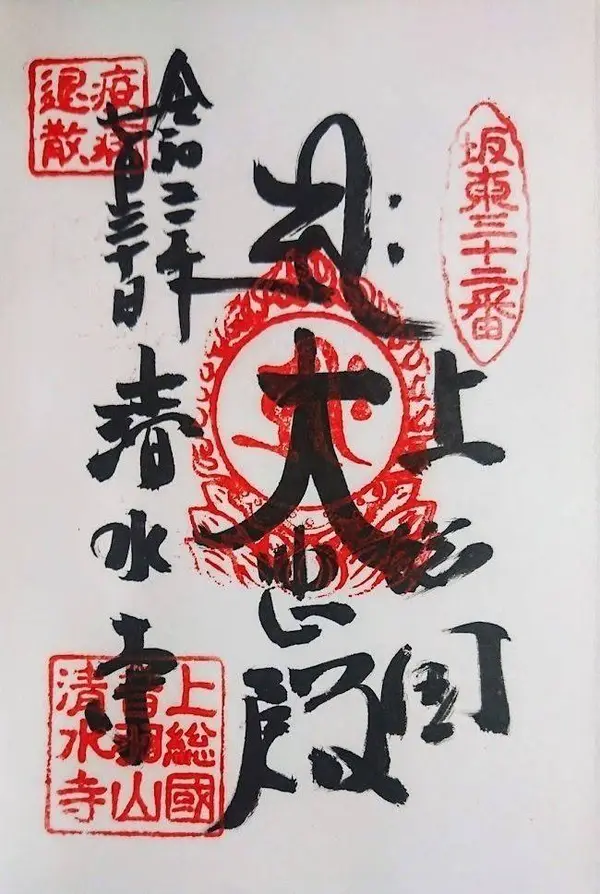 坂東三十二番
上総国
大悲殿
令和二年
七月三十日
清水寺
疫病
退散
上総國
音羽山
清水寺